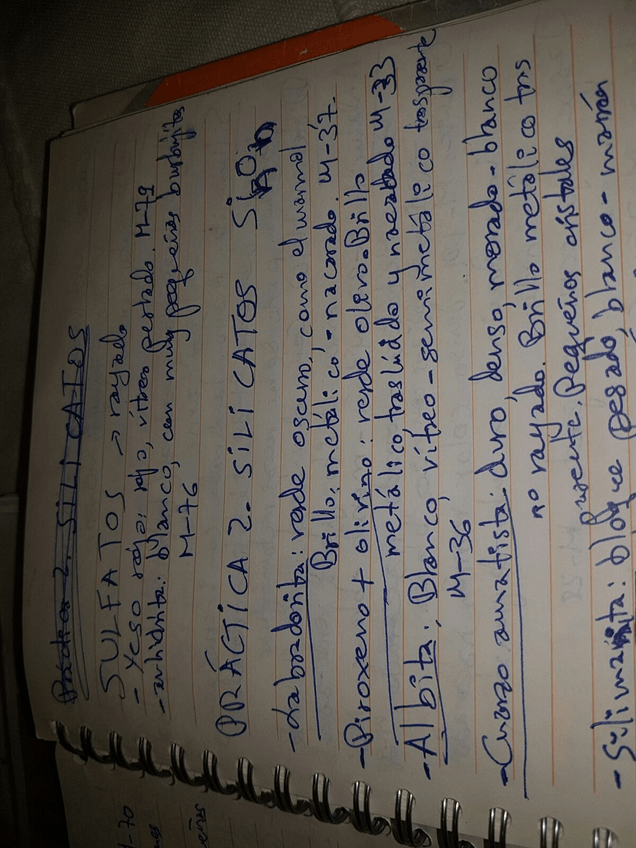 Práctica 2. SILICATOS
SULFATOS → rayado
- Yeso rojo: rojo, vítreo pesado M-79
- anhidrita: blanco, con muy pequeñas burbujitas
M-76
PRÁCTICA 2. SILICATOS
- Labradorita: verde oscuro, como el marmol
Brillo, metálico - nacarado. M-37.
- Piroxeno + olivino: verde olivo. Brillo
metálico, traslúcido y nacarado M-33
- Albita: Blanco, vítreo - semimetálico trasparente
M-36
- Cuarzo amatista: duro, denso, morado - blanco
no rayado. Brillo metálico tras
parente. Pequeños cristales
- Silimanita: bloque pesado, blanco - marrón
M-70